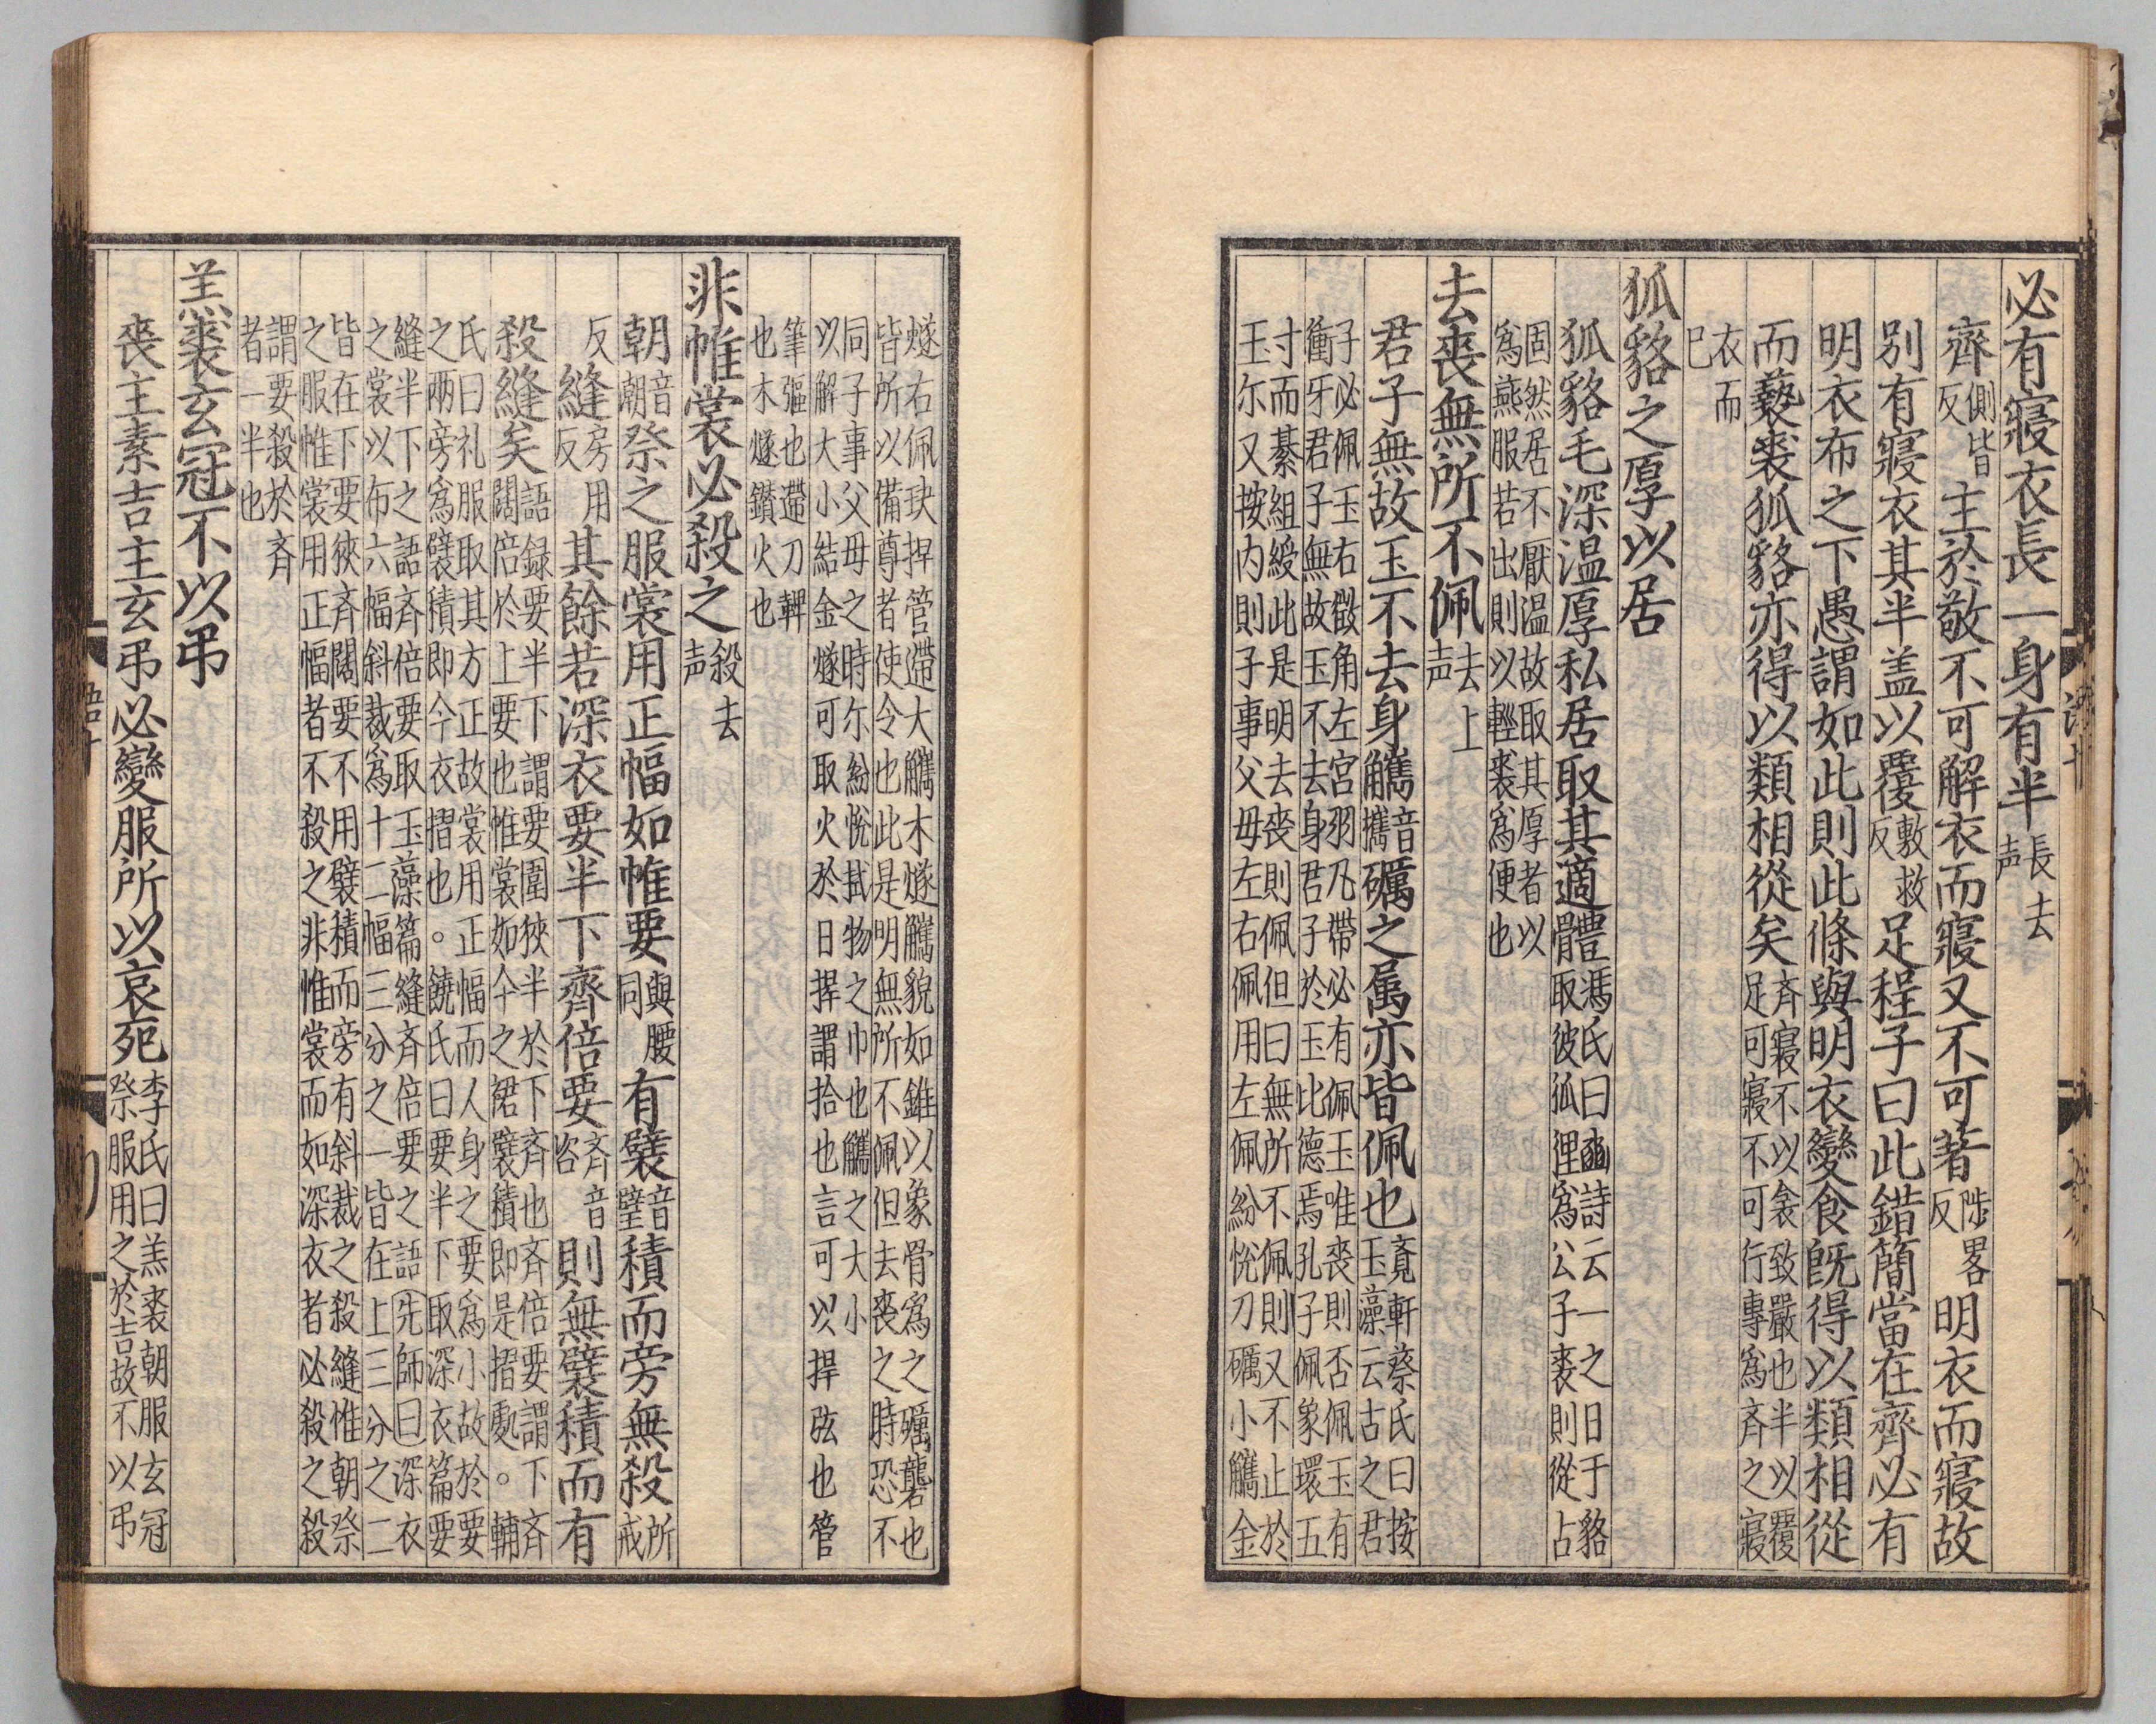 必有寢衣長一身有半長去声
齊側皆反主於敬不可解衣而寢又不可著陟畧反明衣而寢故
別有寢衣其半盖以覆敷救反足程子曰此錯簡當在齊必有
明衣布之下愚謂如此則此條與明衣變食旣得以類相從
而褻裘狐貉亦得以類相從矣斉寢不以衾致嚴也半以覆足可寢不可行專為斉之寢
衣而已
狐貉之厚以居
狐貉毛深温厚私居取其適體馮氏曰豳詩云一之日于貉取彼狐狸為公子裘則從占
固然居不厭温故取其厚者以為燕服若出則以輕裘為便也
去喪無所不佩去上声
君子無故玉不去身觿音攜礪之属亦皆佩也覔軒蔡氏曰按玉藻云古之君
子必佩玉右徵角左宮羽凡帶必有佩玉唯喪則否佩玉有衝牙君子無故玉不去身君子於玉比德焉孔子佩象環五
寸而綦組綬此是明去喪則佩但曰無所不佩則又不止於玉尓又按内則子事父毋左右佩用左佩紛帨刀礪小觿金
燧右佩玦捍管遰大觿木燧觿貌如錐以象骨為之礪礱也皆所以備尊者使令也此是明無所不佩但去喪之時恐不
同子事父毋之時尓紛帨拭物之巾也觿之大小以解大小結金燧可取火於日捍謂拾也言可以捍弦也管
筆彄也遰刀鞞也木燧鑽火也
非帷裳必殺之殺去声
朝音朝祭之服裳用正幅如帷要與腰同有襞音璧積而旁無殺所戒
反縫房用反其餘若深衣要半下齊倍要斉音咨則無襞積而有
殺縫矣語録要半下謂要圍狹半於下斉也斉倍要謂下斉闊倍於上要也帷裳如今之裙襞積即是摺處。輔
氏曰礼服取其方正故裳用正幅而人身之要為小故於要之兩旁為襞積即今衣摺也。饒氏曰要半下取深衣篇要
縫半下之語斉倍要取玉藻篇縫斉倍要之語先師曰深衣之裳以布六幅斜裁為十二幅三分之一皆在上三分之二
皆在下要狹斉闊要不用襞積而旁有斜裁之殺縫惟朝祭之服帷裳用正幅者不殺之非帷裳而如深衣者必殺之殺
謂要殺於斉者一半也
羔裘玄冠不以弔
喪主素吉主玄弔必變服所以哀死李氏曰羔裘朝服玄冠祭服用之於吉故不以弔